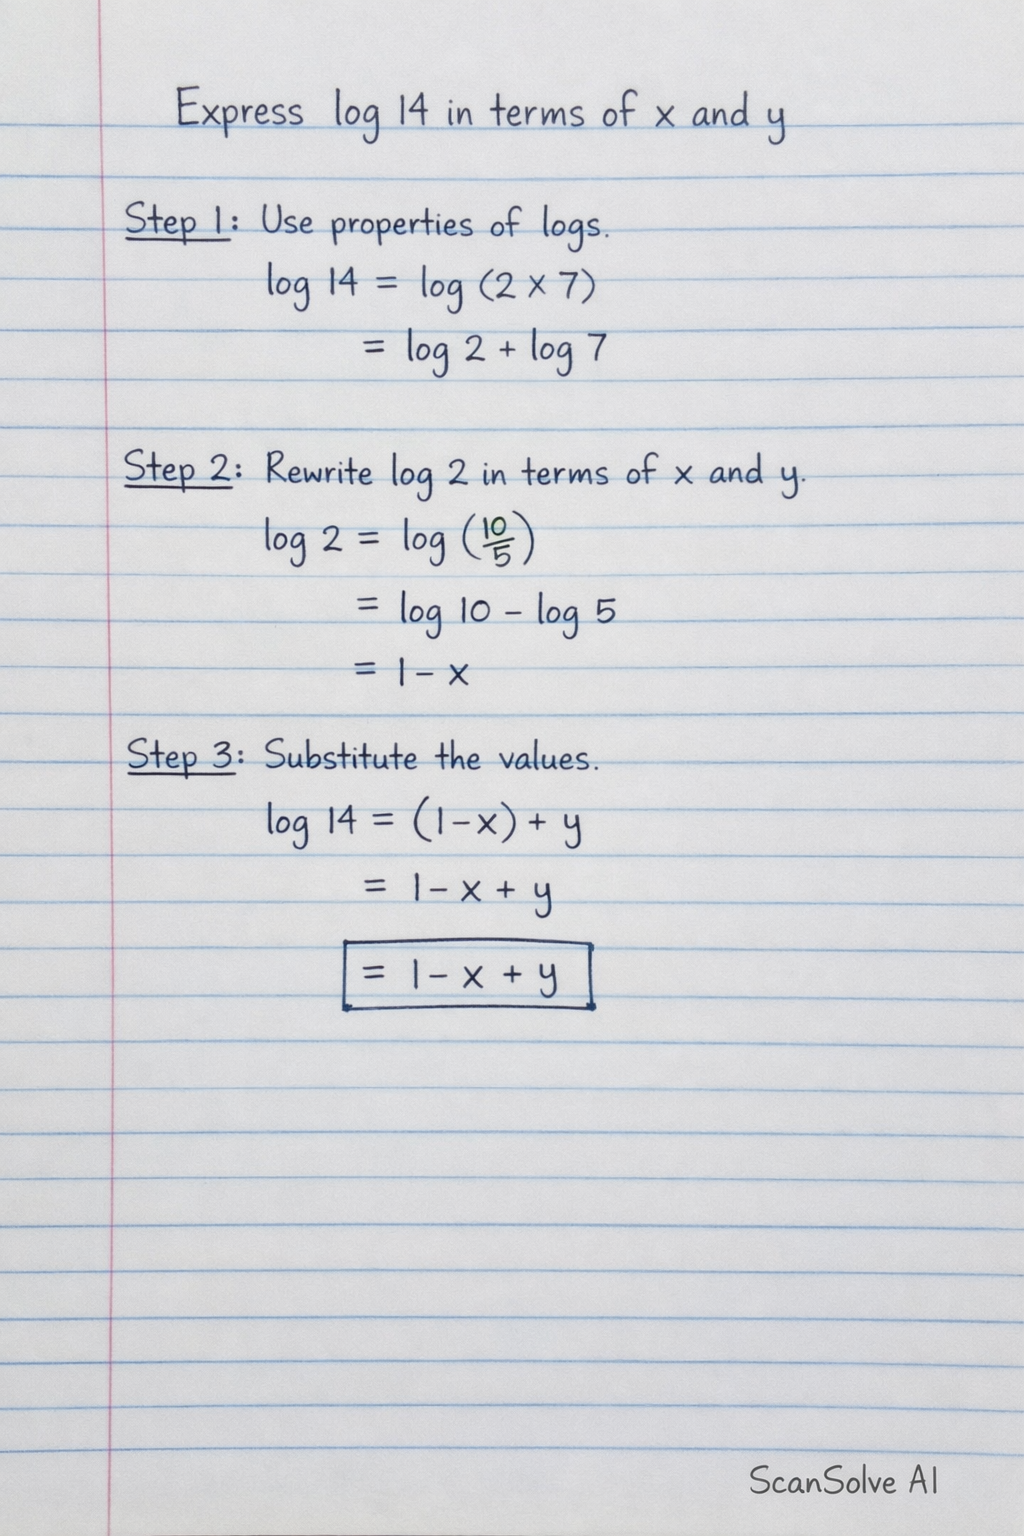 Express log 14 in terms of x and y
Step 1: Use properties of logs.
log 14 = log (2 x 7)
= log 2 + log 7
Step 2: Rewrite log 2 in terms of x and y.
log 2 = log (10/5)
= log 10 - log 5
= 1 - x
Step 3: Substitute the values.
log 14 = (1-x) + y
= 1 - x + y
= 1 - x + y
ScanSolve AI